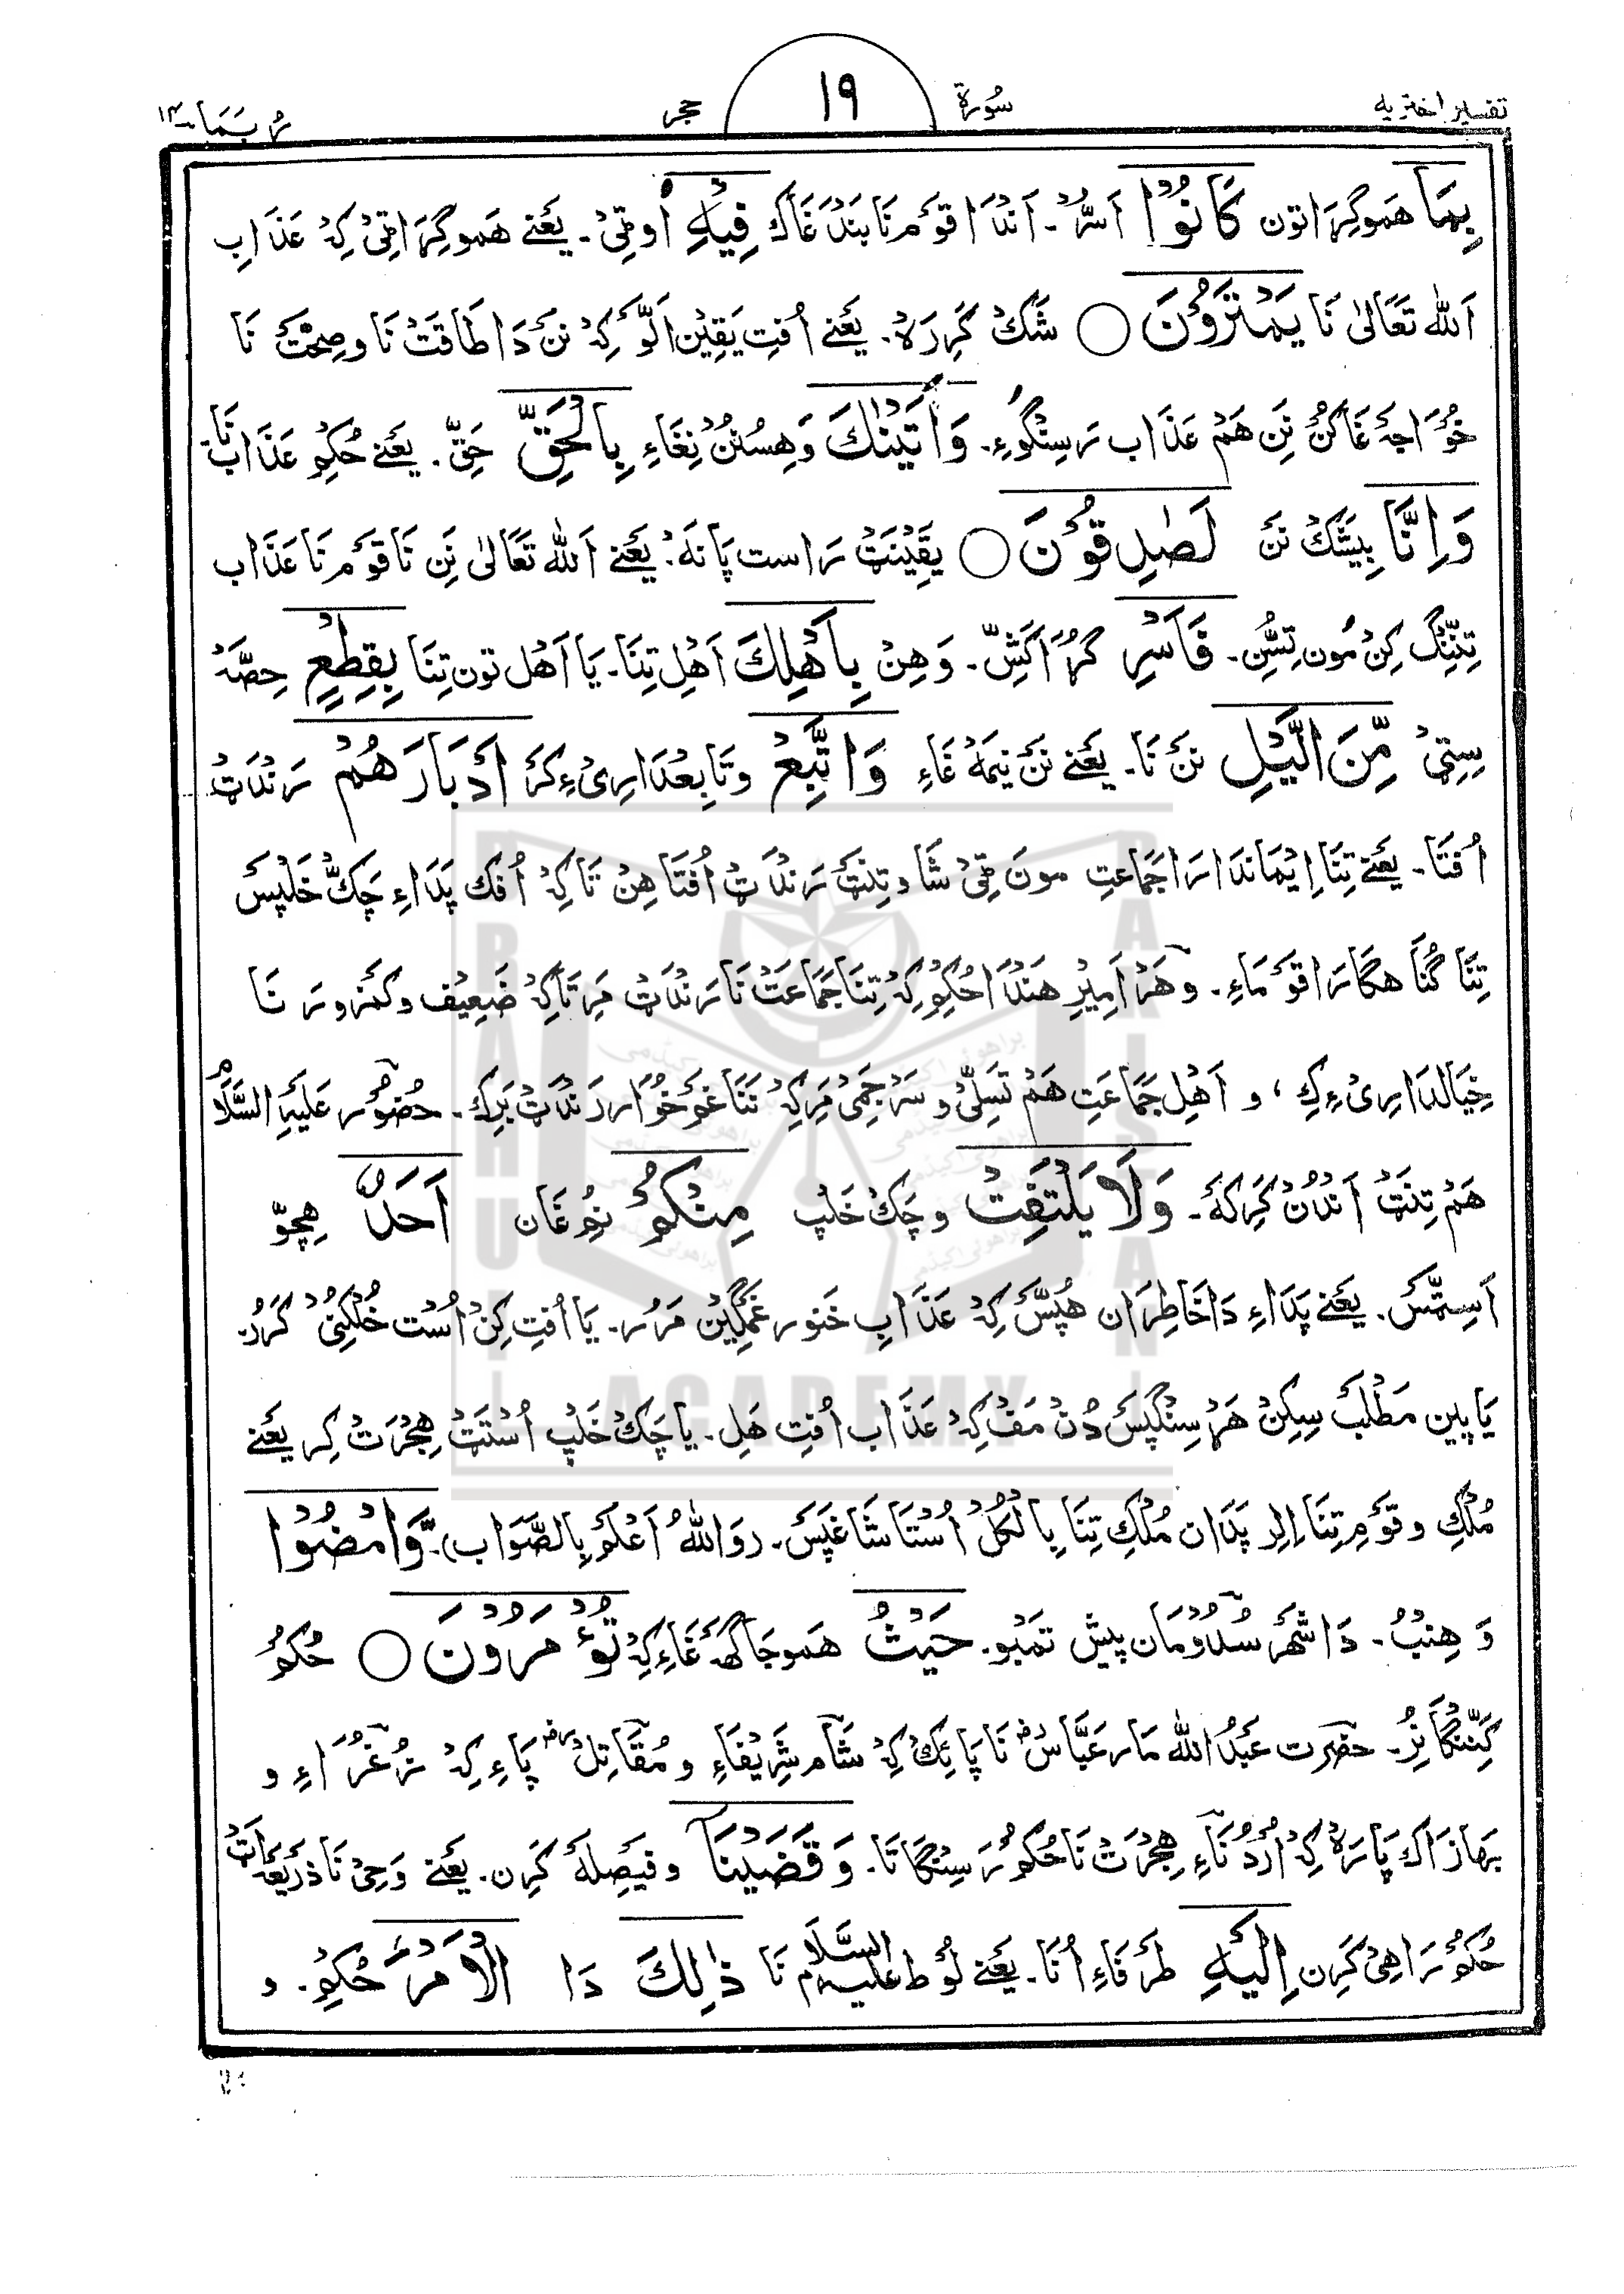 تفسیر اختریه سُورة ١٩ حجر رُبَمَا-١٤
بِمَا هَموگِرَاتون كَانُوْا اَسُّرْ۔ اَنْدَا قَوْم نَا بَنْدَغَاک فِيْهِ اُوٹِی۔ یَعْنے هَموگِرَاٹِی کِہْ عَذَابِ
اَللّٰه تَعَالٰى نَا يَمْتَرُوْنَ ○ شَکْ کَرِرَہْ۔ یَعْنے اُفتِ یَقِیْن اَلَّوْ کِہْ نَنْ دَا طَاقَتْ نَا وصِحْتْ نَا
خُوْاجَہ غَاکُنْ نَن هَمْ عَذَاب رَسِنْگوْءِ۔ وَاَتَيْنٰكَ وَهِسُنُنْ نِغَاءِ بِالْحَقِّ حَقّ۔ یَعْنے حُکِم عَذَاب نَا۔
وَاِنَّا بِیْشَکْ نَنْ لَصٰدِقُوْنَ ○ یَقِیْنَٹ رَاست پَانَہ۔ یَعْنے اَللّٰه تَعَالٰى نَنْ نَا قَوْم نَا عَذَاب
تِنِّنْگ کِنْ مُون تِسُّن۔ فَاَسْرِ گُڑَا کَشّ۔ وَهِنْ بِاَهْلِكَ اَهْلِ تِنَا۔ یَا اَهْل تون تِنَا بِقِطْعٍ حِصَّہْ
سِٹِی مِّنَ الَّيْلِ نَنْ نَا۔ یَعْنے نَنْ نِیْمَہ غَاءِ وَاتَّبِعْ وتَابِعْدَارِیْ ءِکَرْ اَدْبَارَهُمْ رَنْدَٹْ
اُفتَا۔ یَعْنے تِنَا اِیْمَاندَارَا جَمَاعتِ مون ٹِی شَا و تِنَٹ رَنْدَٹْ اُفْتَا هِنْ تَا کِہْ اُفک پَدَاءِ چَکْ خَلْپَسْ
تِنَا گُنَاهگَارَا قَوْمَاءِ۔ وهَرْ اَمِیْرِ هَنْدَا حُکْم کِہْ تِنَا جَمَاعَتْ نَا رَنْدَٹْ مَرِ تَاکِہْ ضَعِیْف و کَمْزور نَا
خِیَالدَارِیْ ءِ کِ، و اَهْلِ جَمَاعَتِ هَمْ تَسَلِّیْ و سَرْجَمِیْ مَرِ کِہْ نَنَا غَم خُوْار رَنْدَٹْ بَرِک۔ حُضُوْر عَلَیْهِ السَّلَام
هَمْ تِنَٹْ اَنْدُنْ کَرِکَہْ۔ وَلَا يَلْتَفِتْ و چَکْ خَلْپ مِنْكُمْ نِمْ غَان اَحَدٌ هِچُوْ
اَسِٹَسْ۔ یَعْنے پَدَاءِ دَا خَاطِرَان هُپَسْ کِہْ عَذَابِ خَنور غَمْگِیْن مَرُر۔ یَا اُفتِ کِنْ اُسْت خُلْکِنِیْ کَرُرْ۔
یَا پین مَطْلَبْ سِکِنْ هَرْ سِنْگِپَسْ دُنْ مَفْ کِہْ عَذَاب اُفتِ هَلِ۔ یَا چَکْ خَلْپ اُسْتَٹْ هِجْرَتْ کِر یَعْنے
مُلْکِ و قَوْمِ تِنَا اِلِر پَدَان مُلْکِ تِنَا بِالْکُلْ اُسْتَا شَاغَپَسْ۔ (وَاللّٰهُ اَعْلَمُ بِالصَّوَاب)۔ وَّامْضُوْا
وَ هِنْبُ۔ دَا شَهْر سُدُوْمَان پِیش تَمْبُو۔ حَيْثُ هَمو جَاگَہ غَاءِ کِہْ تُؤْمَرُوْنَ ○ حُکْمُ
کَنِّنْگَانُرْ۔ حضرت عَبْدُ اللّٰه مَار عَبَّاسْ نَا پَائِکْ کِہْ شَام شَرِیْفَاءِ و مُقَاتِلْ پَاءِ کِہْ زُغَرْ اءِ و
بَهَازَاک پَارَہْ کِہْ اُرْدُنَاءِ هِجْرَتْ نَا حُکم رَسِنْگَا تَا۔ وَقَضَيْنَآ وفَیْصِلَہْ کَرِن۔ یَعْنے وَحِیْ نَا ذَرِیْعَہ اَٹْ
حُکْم رَاهِیْ کَرِن اِلَيْهِ طَرْفَاءِ اُنَا۔ یَعْنے لُوْط عَلیهِ السَّلَام نَا ذٰلِكَ دَا الْاَمْرَ حُکْمِ۔ و
BRAHUI ACADEMY PAKISTAN